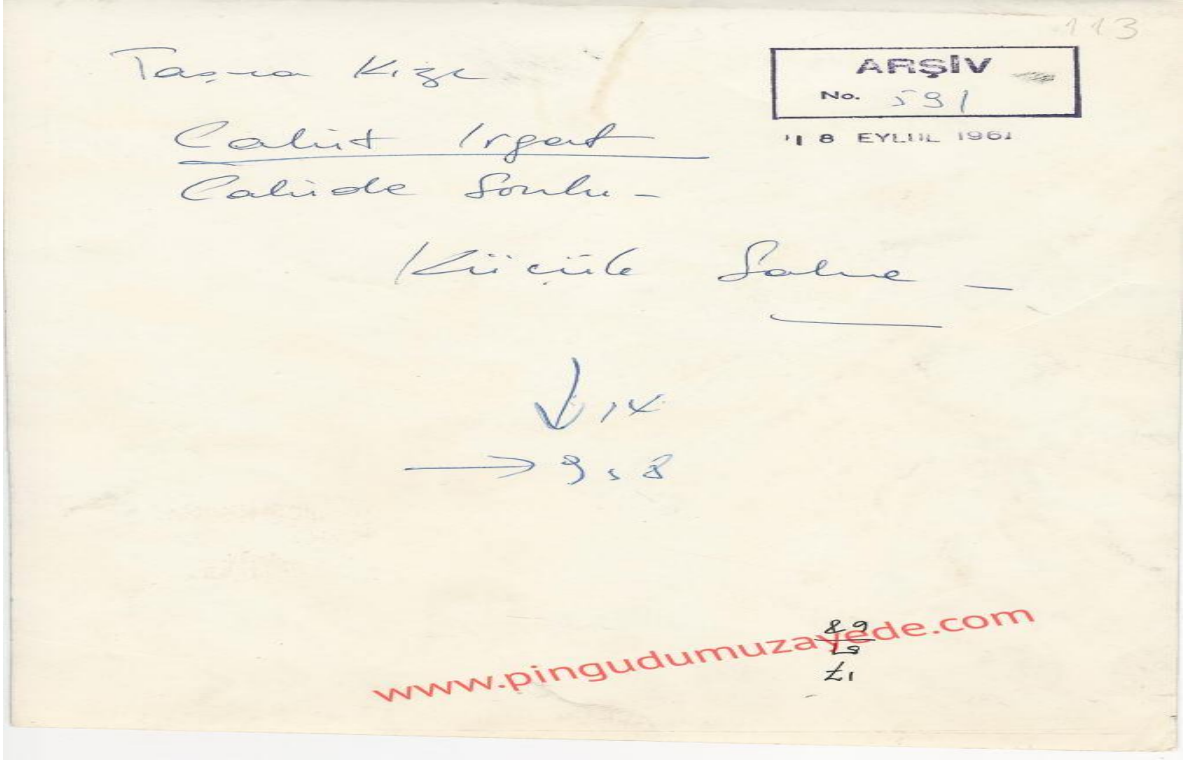 113
Taşra Kızı
ARŞİV
No. 591
18 EYLUL 1961
Cahit Irgat
Cahide Sonku -
Küçük Sahne -
14
→ 9,8
www.pingudumuzayede.com